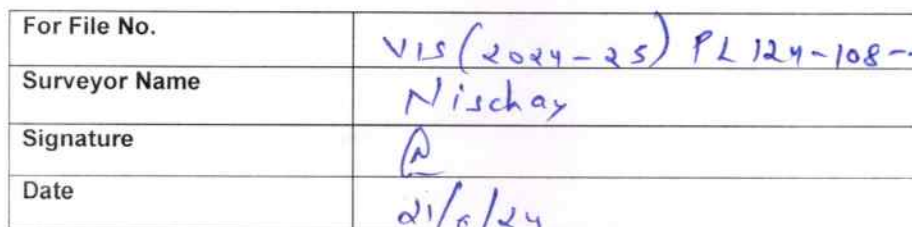 For File No. VIS(2024-25) PL124-108-
Surveyor Name Nischay
Signature
Date